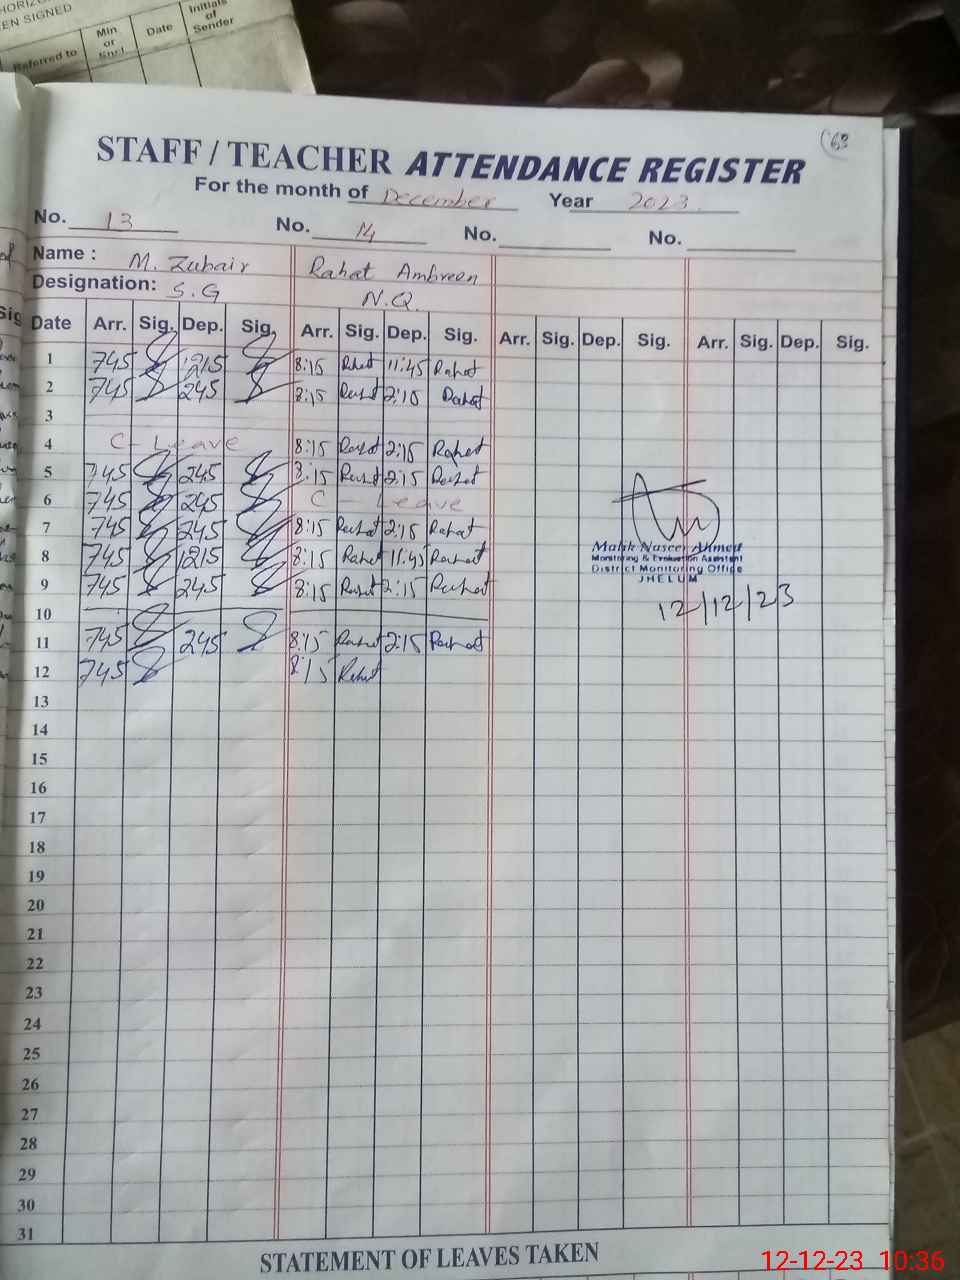 EN SIGNED
Referred to Min. or Encl. Date Initials of Sender
63
STAFF / TEACHER ATTENDANCE REGISTER
For the month of December Year 2023
No. 13 No. 14 No. No.
Name : M. Zubair Rahat Ambreen
Designation: S.G N.Q.
Date Arr. Sig. Dep. Sig. Arr. Sig. Dep. Sig. Arr. Sig. Dep. Sig. Arr. Sig. Dep. Sig.
1 745 1215 8:15 Rahat 11:45 Rahat
2 745 245 8:15 Rahat 2:15 Rahat
3
4 C- Leave 8:15 Rahat 2:15 Rahat
5 745 245 8:15 Rahat 2:15 Rahat
6 745 245 C - Leave
7 745 245 8:15 Rahat 2:15 Rahat
8 745 1215 8:15 Rahat 11:45 Rahat
9 745 245 8:15 Rahat 2:15 Rahat
10
11 745 245 8:15 Rahat 2:15 Rahat
12 745 8:15 Rahat
Malik Naseer Ahmed
Monitoring & Evaluation Assistant
District Monitoring Office
JHELUM
12/12/23
13
14
15
16
17
18
19
20
21
22
23
24
25
26
27
28
29
30
31
STATEMENT OF LEAVES TAKEN
12-12-23 10:36